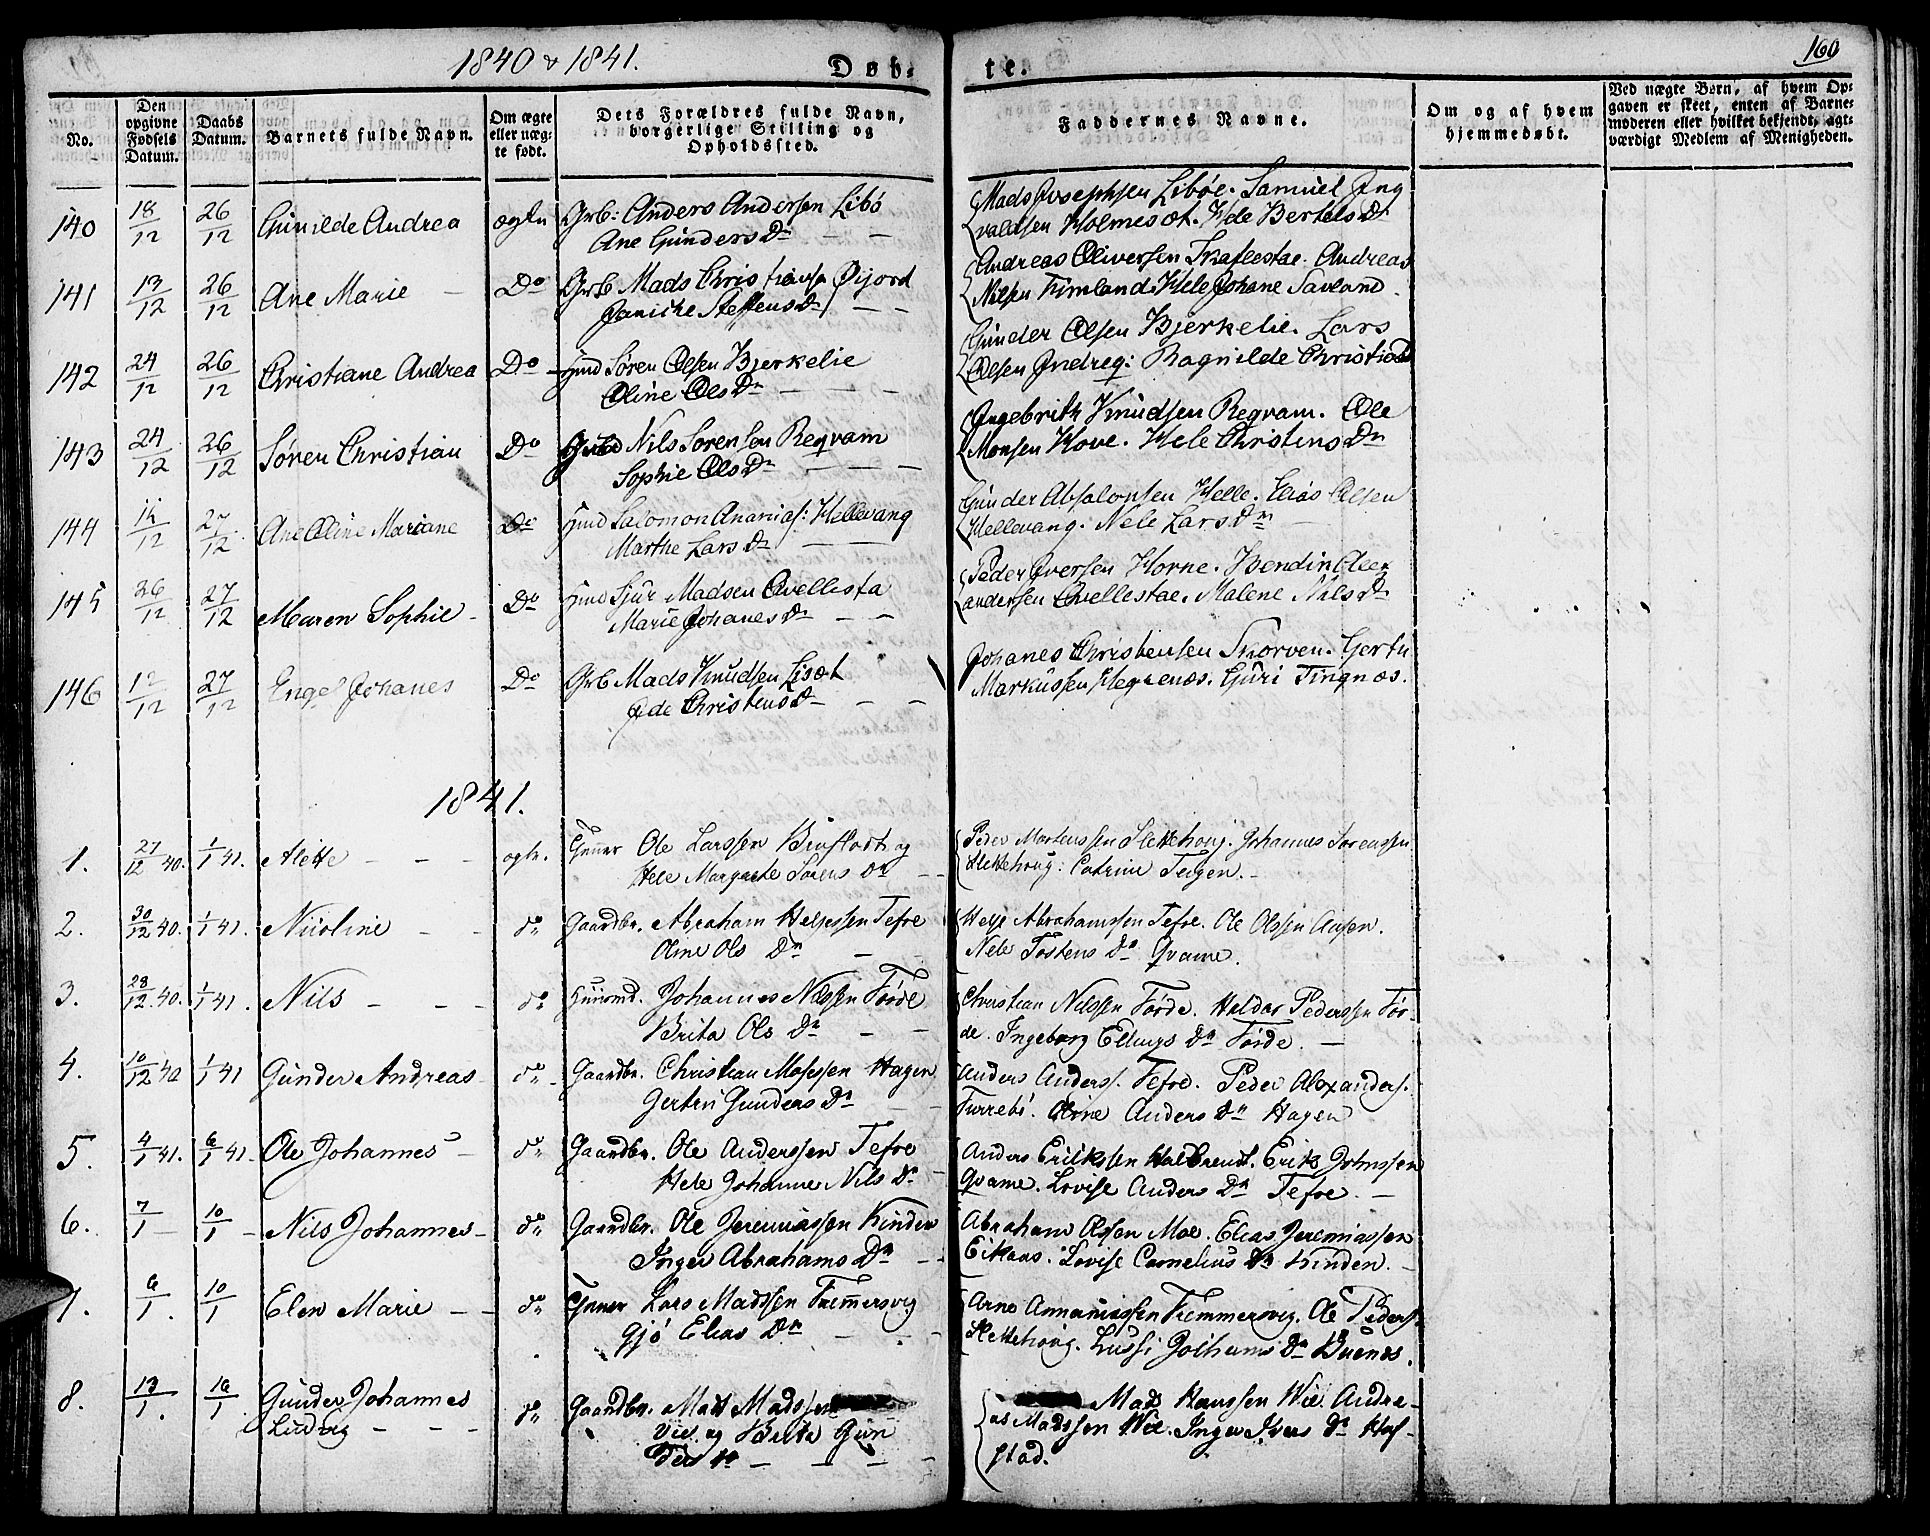 1840 & 1841.
Døb-
te.
160
No.
Den
opgivne
Fødsels
Datum.
Daabs
Datum.
Barnets fulde Navn.
Om ægte
eller uæg-
te født.
Dets Forældres fulde Navn,
borgerlige Stilling og
Opholdssted.
Faddernes Navne.
Om og af hvem
hjemmedøbt.
Ved uægte Børn, af hvem Op-
gaven er skeet, enten af Barne-
moderen eller hvilket bekjendt, agt-
værdigt Medlem af Menigheden.
140 18/12 26/12 Gunilde Andrea ægte Grb: Anders Andersen Libø
Ane Gunders Dr
Mads Josephsen Libøe. Samuel Ing
valdsen Holmesæt. Hele Bertels Dr
141 13/12 26/12 Ane Marie Do Grb Mads Christians Øijord
Janiche Steffens Dr
Andreas Oliversen Skaflestae. Andreas
Nilsen Fimland. Hele Johane Savland
142 24/12 26/12 Christiane Andrea Do Hmd Søren Olsen Bjerkelie
Oline Ols Dr
Gunder Olsen Bjerkelie. Lars
Olsen Indreq: Ragnilde Christi
143 24/12 26/12 Søren Christian Do Nils Sørensen Reqvam
Sophie Ols Dr
Ingebrith Knudsen Reqvam. Ole
Monsen Hove. Hele Christens Dr
144 12/12 27/12 Ane Oline Mariane Do Hmd Salomon Ananias: Hellevang
Marthe Lars Dr
Gunder Absalonsen Helle. Elias Olsen
Hellevang. Nele Lars Dr
145 26/12 27/12 Maren Sophie Do Hmd Sjur Madsen Qvellesta
Marie Johanes Dr
Peder Iversen Horne. Bendin Alex
andersen Qvellestae. Malene Nils Dr
146 12/12 27/12 Engel Johanes Do Grb Mads Knudsen Lisæt
Christens Dr
Johanes Christensen Skorven. Gertu
Markussen Hegrenæs. Guri Tingnæs.
1841.
1. 27/12 40. 1/1 41. Alette ægte. Ole Larssen og
Hele Margrete Sørens Dr
Peder Mortenssen Slettehoug. Johannes Sørenssen
Slettehoug. Catrine Teigen.
2. 30/12 40. 1/1 41. Nicoline do Gaardbr. Abraham Helgessen Tefre
Oline Ols Dr
Helge Abrahamssen Tefre. Ole Olssen Aasen.
Nele Tostens Dr Qvame.
3. 28/12 40. 1/1 41. Nils do Huusmd. Johannes Nilssen Førde
Brita Ols Dr
Christian Nilssen Førde. Haldor Pederssen Før-
de. Ingeborg Ellings Dr Førde.
4. 10/12 40 1/1 41 Gunder Andreas do Gaardbr. Christian Mosessen Hagen
Gertru Gunders Dr
Anders Anderss. Tefre. Peder Alexanders.
Turrebø. Oline Anders Dr Hagen
5. 4/1 41. 6/1 41. Ole Johannes do Gaardbr. Ole Anderssen Tefre
Hele Johanne Nils Dr
Anders Erikssen Halbrendt. Erik Johnssen
Qvame. Lovise Anders Dr Tefre.
6. 7/1 10/1 Nils Johannes do Gaardbr. Ole Jeremiassen Kinden
Inger Abrahams Dr
Abraham Olssen Moe. Elias Jeremiassen
Eikaas. Lovise Cornelius Dr Kinden.
7. 6/1. 10/1 Elen Marie do Lars Madssen Tremmersvig
Gjø Elias Dr
Arne Annaniassen Tremmersvig. Ole Peders.
Slettehoug. Lussi Jothams Dr Buenes.
8. 13/1. 16/1 Gunder Johannes
Ludvig do Gaardbr. Mads Madssen
Vie og Brita Gun
ders Dr
Mads Hanssen Wie. Andre-
as Madssen Wie. Inger Ivers Dr Haf-
stad.